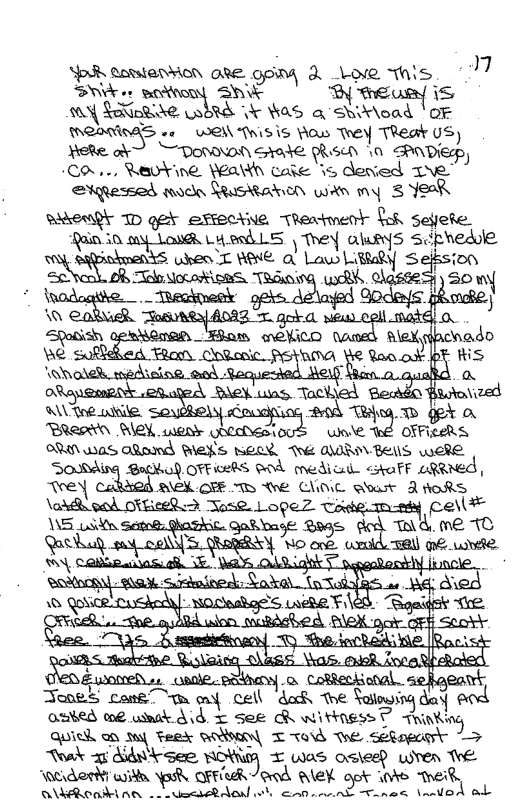 17
Your convention are going 2 Love This
shit.. Anthony shit By the way is
my favorite word it Has a shitload OF
meanings.. well This is How They Treat us,
Here at Donovan state prison in SAN Diego,
Ca... Routine Health care is denied I've
expressed much frustration with my 3 year
Attempt TO get effective Treatment for severe
pain in my Lower L4 And L5, They always schedule
my appointments when I HAVE a Law Library session
school or Job vocations Training work classes, so my
inadaquite Treatment gets delayed 90 days or more,
in earlier January 2023 I got a new cell mate a
spanish gentlemen From mexico named Alex, machado
He suffered From chronic Asthma He Ran out of His
inhaler medicine and Requested Help from a guard a
arguement eruped Alex was Tackled Beaten Brutalized
all The while severely coughing And Trying TO get a
Breath Alex went unconscious while The OFFicers
arm was around Alex's Neck The alarm Bells were
sounding Backup OFFicers And medical staff arrived,
They carted Alex OFF TO the clinic About 2 Hours
later and officer → Jose Lopez came to my cell#
115 with some plastic garbage Bags And Told me TO
Packup my celly's property No one would Tell me where
my cellie was or if He's alright? Apparently uncle
Anthony Alex sustained fatal Injuryes.. He died
in police custody nocharge's were Filed Against The
OFFicer... The guard who murdered Alex got OFF scott
free Its a TO The incredible Racist
powers that the Rulieing class Has over incarcerated
men & women.. uncle Anthony a correctional sergeant
Jones came To my cell door The following day And
asked me what did I see or wittness? Thinking
quick on my Feet Anthony I Told The sergeant →
That I didn't see Nothing I was asleep when The
incident with your OFFicer And Alex got into Their
altercation ... yesterday sergeant Jones looked At